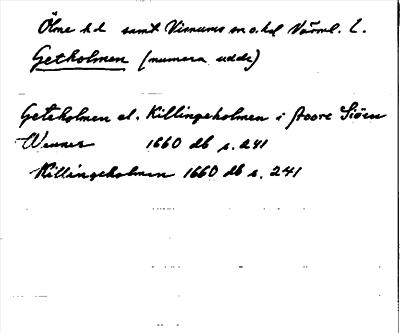 Ölme hd samt Visnums sn o. hd Värml. l.
Getholmen (numera udde)
Geteholmen al. Killingeholmen i stoore Siöen
Wenner 1660 db s. 241
Killingeholmen 1660 db s. 241